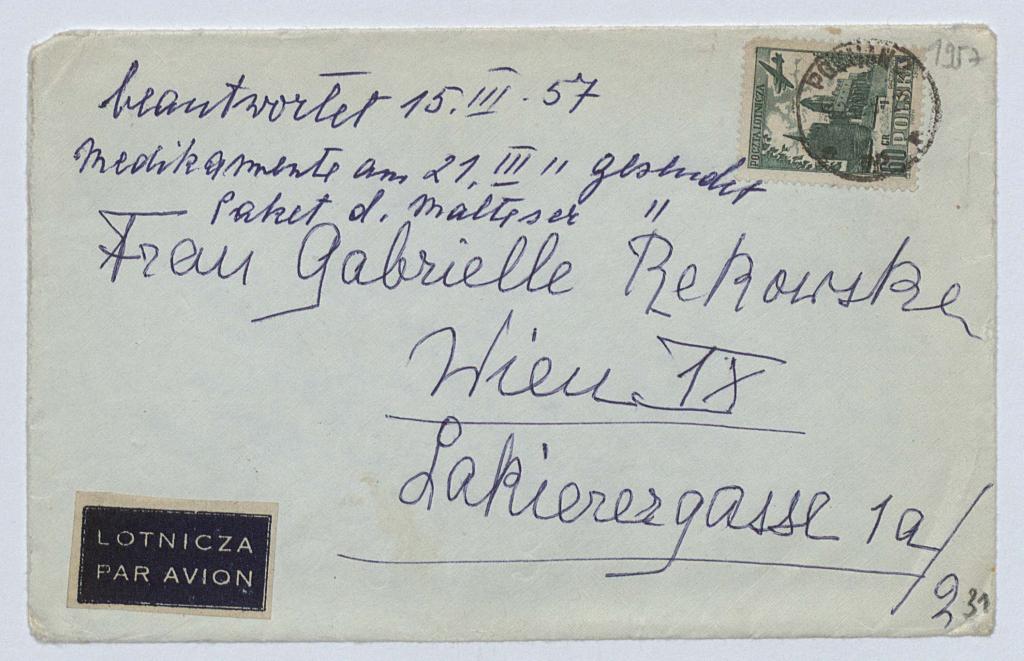 1957
POCZTA LOTNICZA
60 GR. POLSKA
POZNAŃ
beantwortet 15.III.57
Medikamente am 21.III " gesendet
Paket d. Malteser "
Frau Gabrielle Rekowska
Wien IX
Lakierergasse 1a/
2
31
LOTNICZA
PAR AVION